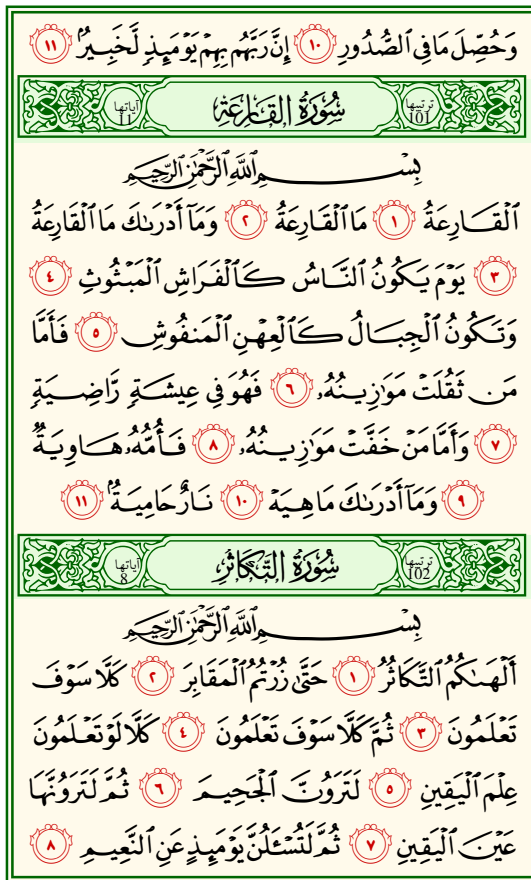 وَحُصِّلَ مَا فِي ٱلصُّدُورِ ١٠ إِنَّ رَبَّهُم بِهِمْ يَوْمَئِذٍ لَّخَبِيرٌۢ ١١
ترتيبها 101 سُورَةُ القَارِعَةِ آياتها 11
بِسْمِ ٱللَّهِ ٱلرَّحْمَٰنِ ٱلرَّحِيمِ
ٱلْقَارِعَةُ ١ مَا ٱلْقَارِعَةُ ٢ وَمَآ أَدْرَىٰكَ مَا ٱلْقَارِعَةُ
٣ يَوْمَ يَكُونُ ٱلنَّاسُ كَٱلْفَرَاشِ ٱلْمَبْثُوثِ ٤
وَتَكُونُ ٱلْجِبَالُ كَٱلْعِهْنِ ٱلْمَنفُوشِ ٥ فَأَمَّا
مَن ثَقُلَتْ مَوَٰزِينُهُۥ ٦ فَهُوَ فِي عِيشَةٍ رَّاضِيَةٍ
٧ وَأَمَّا مَنْ خَفَّتْ مَوَٰزِينُهُۥ ٨ فَأُمُّهُۥ هَاوِيَةٌ
٩ وَمَآ أَدْرَىٰكَ مَا هِيَهْ ١٠ نَارٌ حَامِيَةٌۢ ١١
ترتيبها 102 سُورَةُ التَّكَاثُرِ آياتها 8
بِسْمِ ٱللَّهِ ٱلرَّحْمَٰنِ ٱلرَّحِيمِ
أَلْهَىٰكُمُ ٱلتَّكَاثُرُ ١ حَتَّىٰ زُرْتُمُ ٱلْمَقَابِرَ ٢ كَلَّا سَوْفَ
تَعْلَمُونَ ٣ ثُمَّ كَلَّا سَوْفَ تَعْلَمُونَ ٤ كَلَّا لَوْ تَعْلَمُونَ
عِلْمَ ٱلْيَقِينِ ٥ لَتَرَوُنَّ ٱلْجَحِيمَ ٦ ثُمَّ لَتَرَوُنَّهَا
عَيْنَ ٱلْيَقِينِ ٧ ثُمَّ لَتُسْـَٔلُنَّ يَوْمَئِذٍ عَنِ ٱلنَّعِيمِ ٨